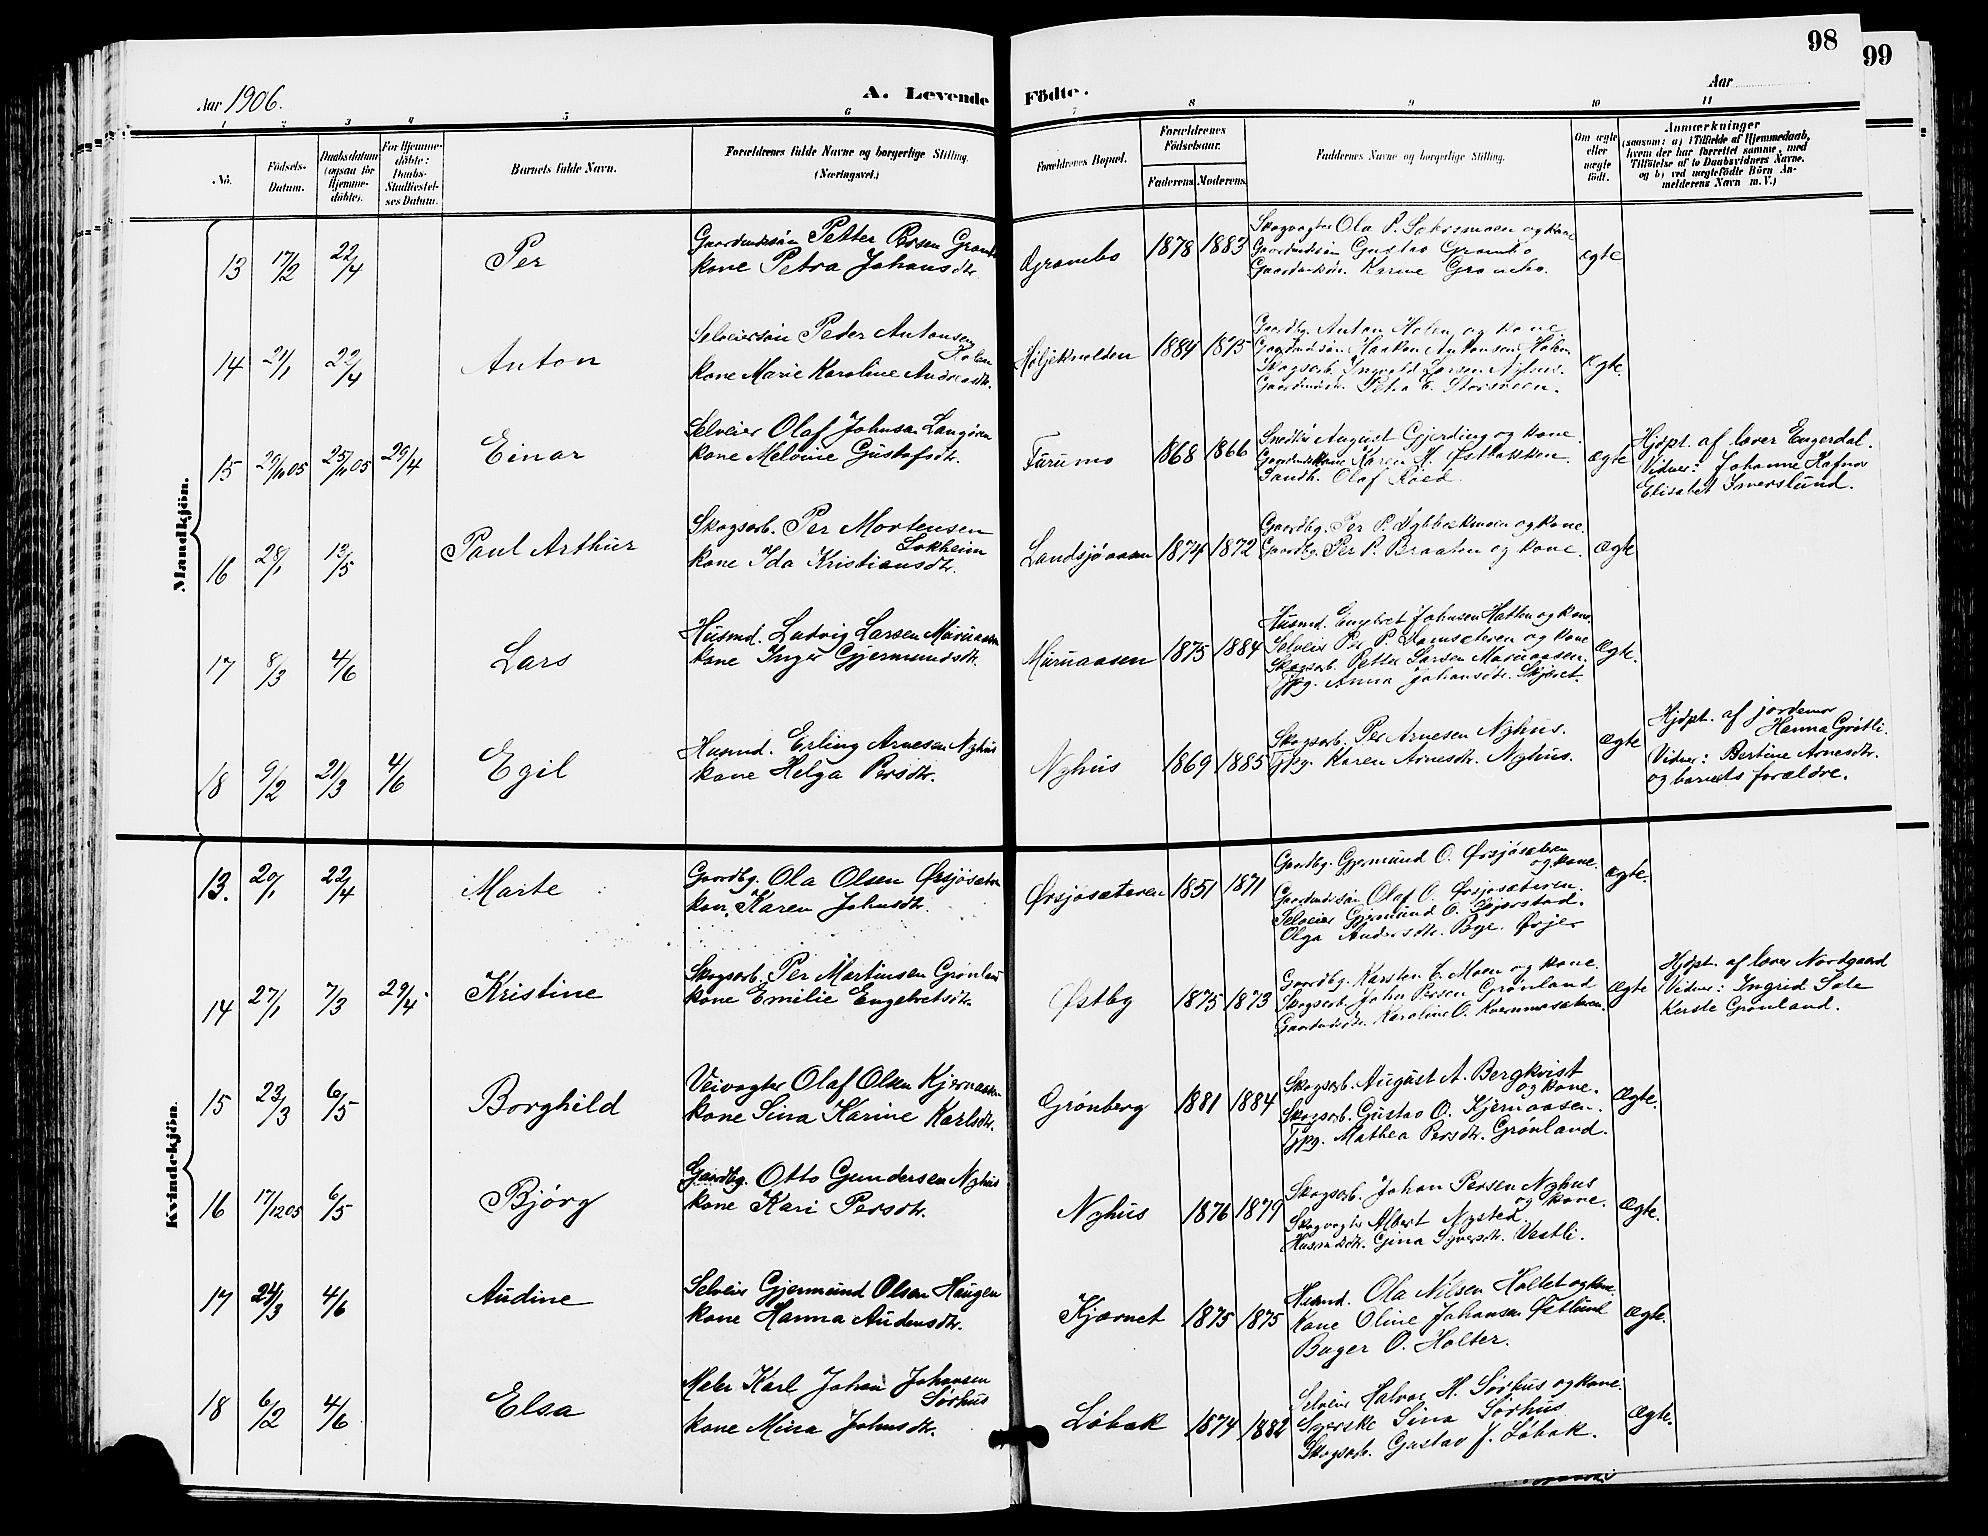 98
99
Aar 1906.
A. Levende Födte.
Aar
1 2 3 4 5 6 7 8 9 10 11
No.
Födsels-
Datum.
Daabsdatum
(ogsaa for
Hjemme-
döbte).
For Hjemme-
döbte:
Daabs-
Stadfæstel-
ses Datum.
Barnets fulde Navn.
Forældrenes fulde Navne og borgerlige Stilling.
(Næringsvei.)
Forældrenes Bopæl.
Forældrenes
Födselsaar.
Faderens. Moderens.
Faddernes Navne og borgerlige Stilling.
Om ægte
eller
uægte
födt.
Anmærkninger
(saasom: a) i Tilfælde af Hjemmedaab,
hvem der har forrettet samme, med
Tilföielse af to Daabsvidners Navne.
og b) ved uægtefödte Börn An-
melderens Navn m. V.)
Mandkjön.
13 17/2 22/4 Per
Gaardmandssøn Petter Persen
kone Petra Johansdtr.
Grambo 1878 1883
Skogvogter Ola P. og kone
Gaardmandssøn Gustav Grambo
Karine Grambo.
ægte
14 21/1 22/4 Anton
Selveiersøn Peder Antonsen
Holen
kone Marie Karoline Andreasdtr.
1884 1875
Gaardbr. Anton Holen og kone
Gaardmandssøn Haakon Antonsen Holen
Skogsarb. Ingvald Larsen Nyhus.
Petra E. Stormoen.
ægte.
15 29/10 05 25/11 05 29/4 Einar
Selveier Olaf Johnsen
kone Melvine Gustafsdtr.
Furumo 1868 1866
Snedker August Gjerding og kone.
Karen M. Østbakken.
Landh. Olaf Roed.
ægte
Hjdpt. af lærer Engerdal.
Vidner: Johanne
Elisabet
16 28/1 13/5 Paul Arthur
Skogsarb. Per Mortensen
Sokheim
kone Ida Kristiansdtr.
Landsjøaasen 1874 1872
Gaardbg. Per P. og kone.
Gaardbg. Per P. Braaten og kone.
ægte
17 8/3 4/6 Lars
Husmd. Ludvig Larsen Muruaasen
kone Inger Gjermundsdtr.
Muruaasen 1875 1884
Husmd. Engebret Johnsen og kone
Selveier Per P. og kone
Skogsarb. Petter Larsen Muruaasen.
Tjpg. Anna Johansdtr. Skjæret.
ægte.
18 9/2 21/3 4/6 Egil
Husmd. Erling Arnesen Nyhus
kone Helga Persdtr.
Nyhus 1869 1885
Skogsarb. Per Arnesen Nyhus.
Tjpg. Karen Arnesdtr. Nyhus.
ægte
Hjdpt. af jordemor
Hanna Grøtli.
Vidner: Bertine Arnesdtr.
og barnets forældre.
Kvindekjön.
13. 20/1 22/4 Marte
Gaardbg. Ola Olsen Ørsjøsætren
kone Karen Johnsdtr.
Ørsjøsæteren 1851 1871
Gaardbg. Gjermund O. Ørsjøsæteren
og kone.
Gaardmandssøn Olaf O. Ørsjøsæteren.
Selveier Gjermund O.
Olga Andersdtr. Bye.
ægte.
14 27/1 7/3 29/4 Kristine
Skogsarb. Per Martinsen Grønland
kone Emilie Engebretsdtr.
Østby 1875 1873
Gaardbg. Karsten E. Moen og kone.
Skogsarb. John Persen Grønland
Karoline O. Kvernmosæteren.
ægte
Hjdpt. af lærer Nordgaard
Vidner: Ingrid
Kerste Grønland.
15 23/3 6/5 Borghild
Veivogter Olaf Olsen Kjernaasen
kone Sina Karine Karlsdtr.
Grønberg 1881 1884
Skogsarb. August A. Bergkvist
og kone.
Skogsarb. Gustav O. Kjernaasen.
Tjpg. Mathea Persdtr. Grønland.
ægte.
16 17/12 05 6/5 Bjørg
Gaardbg. Otto Gundersen Nyhus
kone Kari Persdtr.
Nyhus 1876 1879
Skogsarb. Johan Persen Nyhus
og kone.
Skogvogter Albert Nysted.
Husmdsdtr. Gina Syversdtr. Vestli.
ægte.
17 24/3 4/6 Audine
Selveier Gjermund Olsen Haugen
kone Hanna Audensdtr.
Kjærnet 1875 1875
Husmd. Ola Nilsen Holtet og kone.
Kone Oline Johansen Østlund
Bager O. Holter.
ægte.
18 6/2 4/6 Elsa
Maler Karl Johan Johansen
Sørhus
kone Mina Johnsdtr.
Løbak 1874 1882
Selveier Halvor H. Sørhus og kone.
Syerske Sina Sørhus
Skogsarb. Gustav J. Løbak.
ægte.